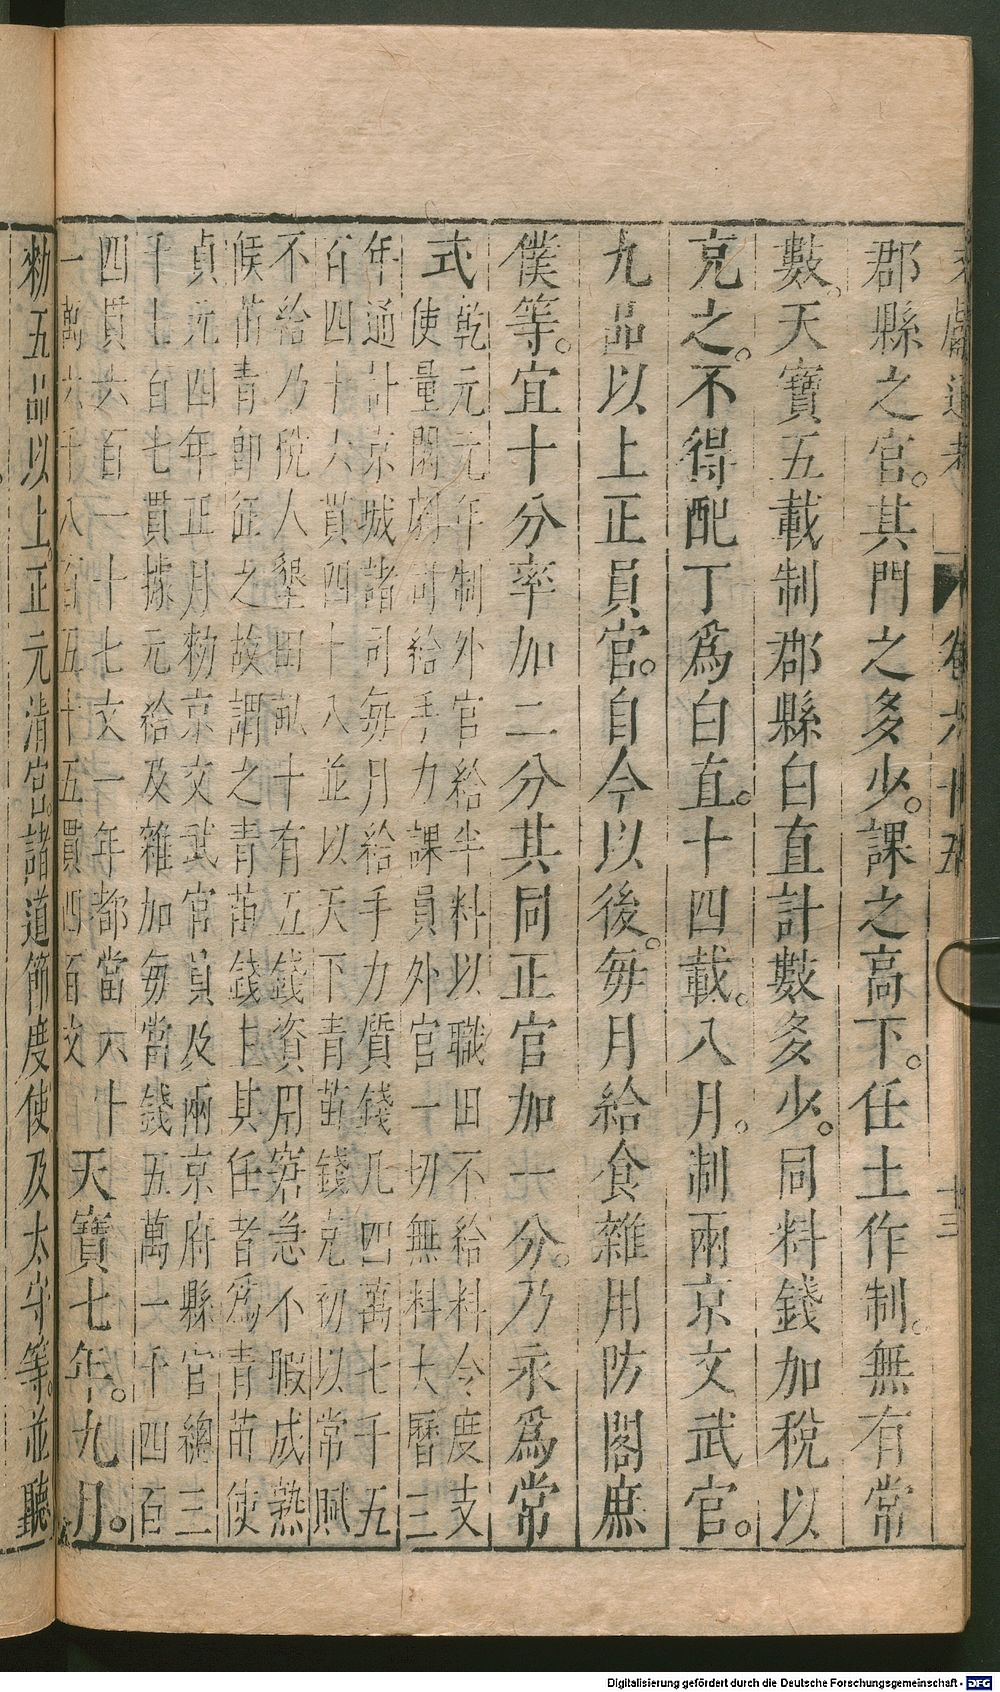 文獻通考 卷六十五 十三
郡縣之官。其門之多少。課之高下。任土作制。無有常
數。天寶五載制郡縣白直計數多少。同料錢加稅以
克之。不得配丁爲白直。十四載。八月。制兩京文武官。
九品以上正員官。自今以後。每月給食雜用防閣庶
僕等。宜十分率加二分其同正官加一分。乃永爲常
式
乾元元年制外官給半料以職田不給料今度支
使量閑劇司給手力課員外官一切無料大曆三
年通計京城諸司每月給手力質錢凡四萬七千五
百四十六貫四十八並以天下青苗錢克初以常賦
不給乃稅人墾田畝十有五錢資用窘急不暇成熟
候苗青即征之故謂之青苗錢主其任者爲青苗使
貞元四年正月勑京文武官員及兩京府縣官總三
千七百七貫據元給及雜加每當錢五萬一千四百
四貫六百一十七文一年都當六十
一萬六千八百五十五貫四百文
天寶七年。九月。
勑五品以上。正元清官。諸道節度使及太守等。並聽
Digitalisierung gefördert durch die Deutsche Forschungsgemeinschaft - DFG